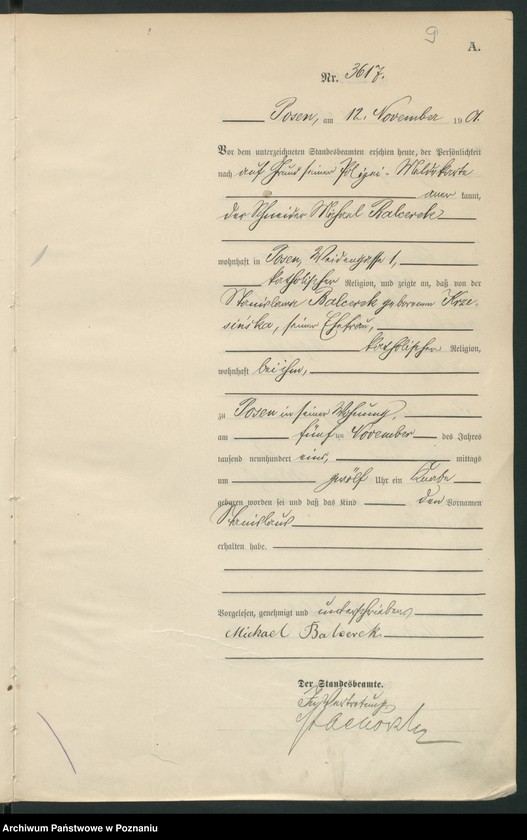 9
A.
Nr. 3617.
Posen, am 12. November 1901.
Vor dem unterzeichneten Standesbeamten erschien heute, der Persönlichkeit
nach auf Grund seiner Polizei-Meldekarte
aner kannt,
der Schneider Michael Balcerek
wohnhaft in Posen, Weidengasse 1,
katholischer Religion, und zeigte an, daß von der
Stanislawa Balcerek geborenen Krze-
sińska, seiner Ehefrau,
katholischer Religion,
wohnhaft bei ihm,
zu Posen in seiner Wohnung,
am fünften November des Jahres
tausend neunhundert eins, mittags
um zwölf Uhr ein Knabe
geboren worden sei und daß das Kind den Vornamen
Stanislaus
erhalten habe.
Vorgelesen, genehmigt und unterschrieben
Michael Balcerek
Der Standesbeamte.
In Vertretung
Archiwum Państwowe w Poznaniu